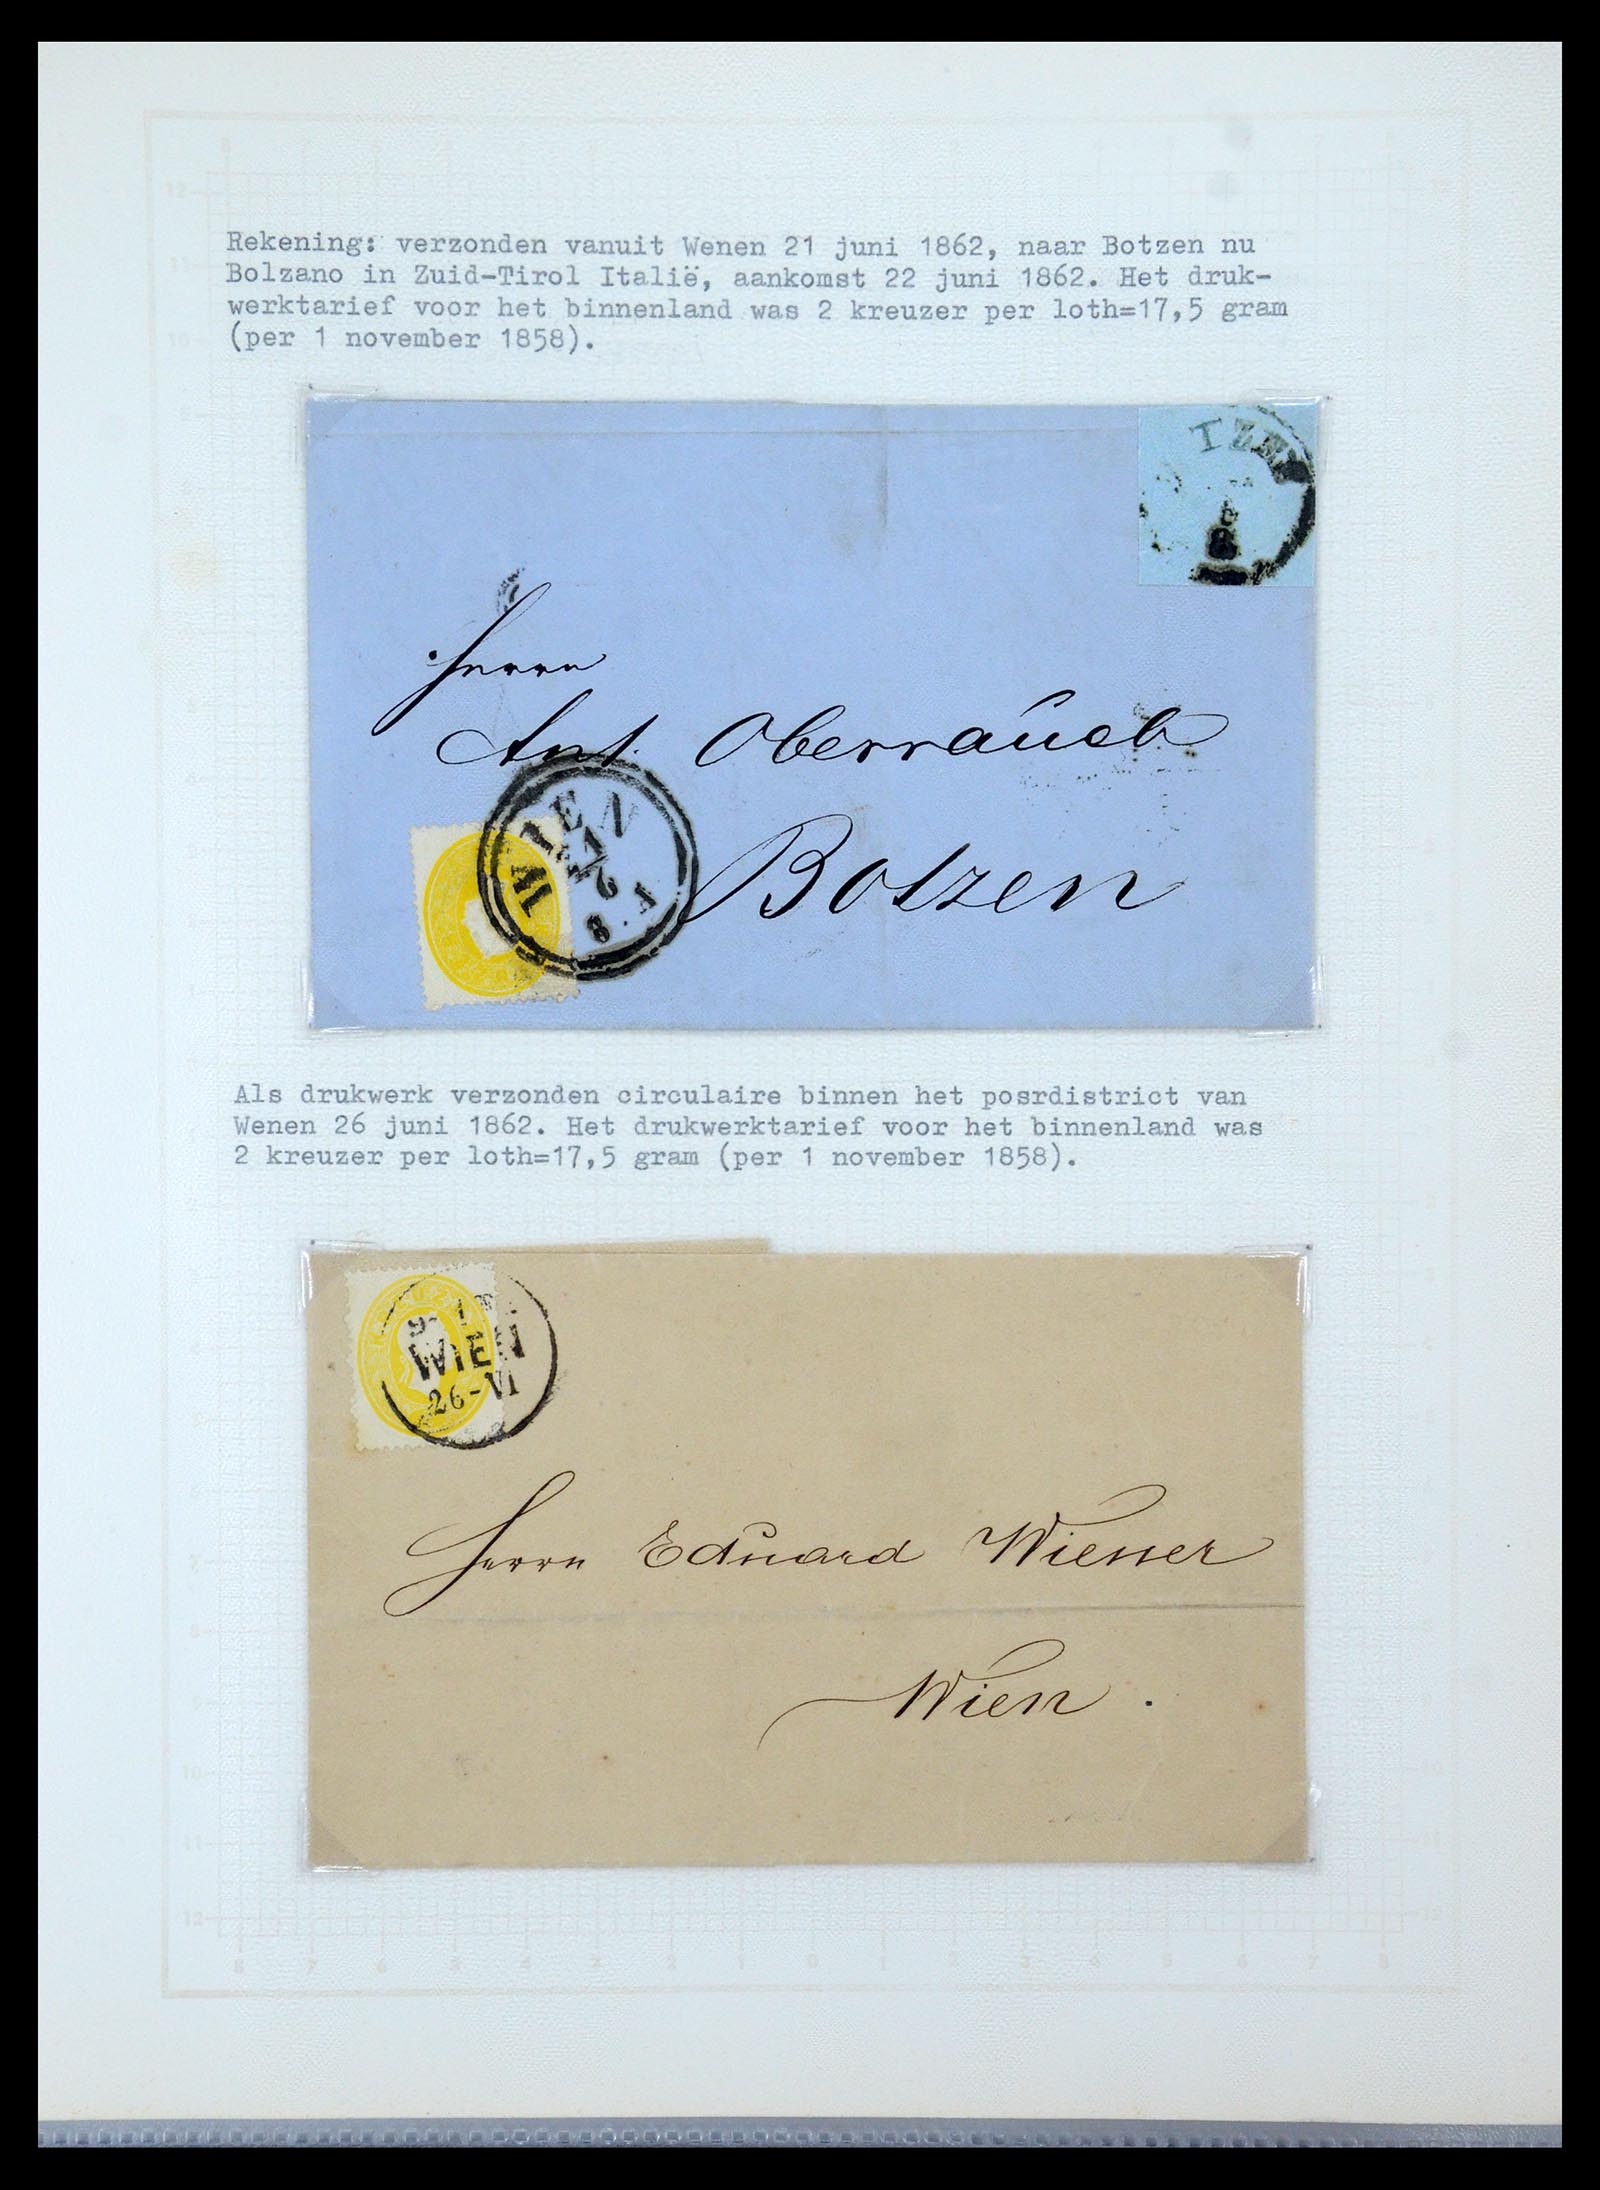 Rekening: verzonden vanuit Wenen 21 juni 1862, naar Botzen nu
Bolzano in Zuid-Tirol Italië, aankomst 22 juni 1862. Het druk-
werktarief voor het binnenland was 2 kreuzer per loth=17,5 gram
(per 1 november 1858).
TZEN
Herrn
Ant. Oberrauch
WIEN
Botzen
Als drukwerk verzonden circulaire binnen het posrdistrict van
Wenen 26 juni 1862. Het drukwerktarief voor het binnenland was
2 kreuzer per loth=17,5 gram (per 1 november 1858).
WIEN
26-VI
Herrn Eduard Wiener
Wien.